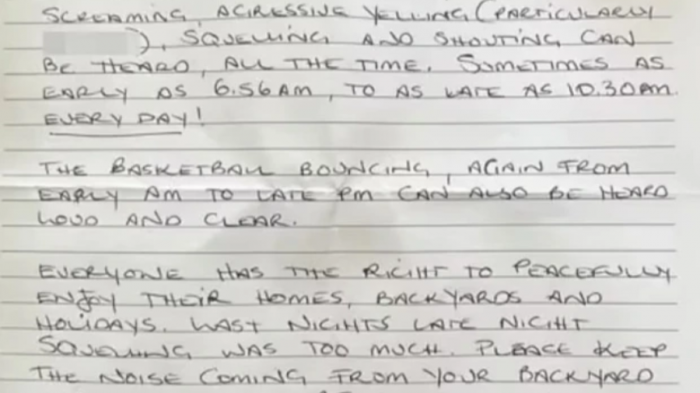 SCREAMING, AGRESSIVE YELLING (PARTICULARLY
), SQUELLING AND SHOUTING CAN
BE HEARD, ALL THE TIME. SOMETIMES AS
EARLY AS 6.56AM, TO AS LATE AS 10.30PM.
EVERY DAY!
THE BASKETBALL BOUNCING, AGAIN FROM
EARLY AM TO LATE PM CAN ALSO BE HEARD
LOUD AND CLEAR.
EVERYONE HAS THE RIGHT TO PEACEFULLY
ENJOY THEIR HOMES, BACKYARDS AND
HOLIDAYS. LAST NIGHTS LATE NIGHT
SQUELLING WAS TOO MUCH. PLEASE KEEP
THE NOISE COMING FROM YOUR BACKYARD